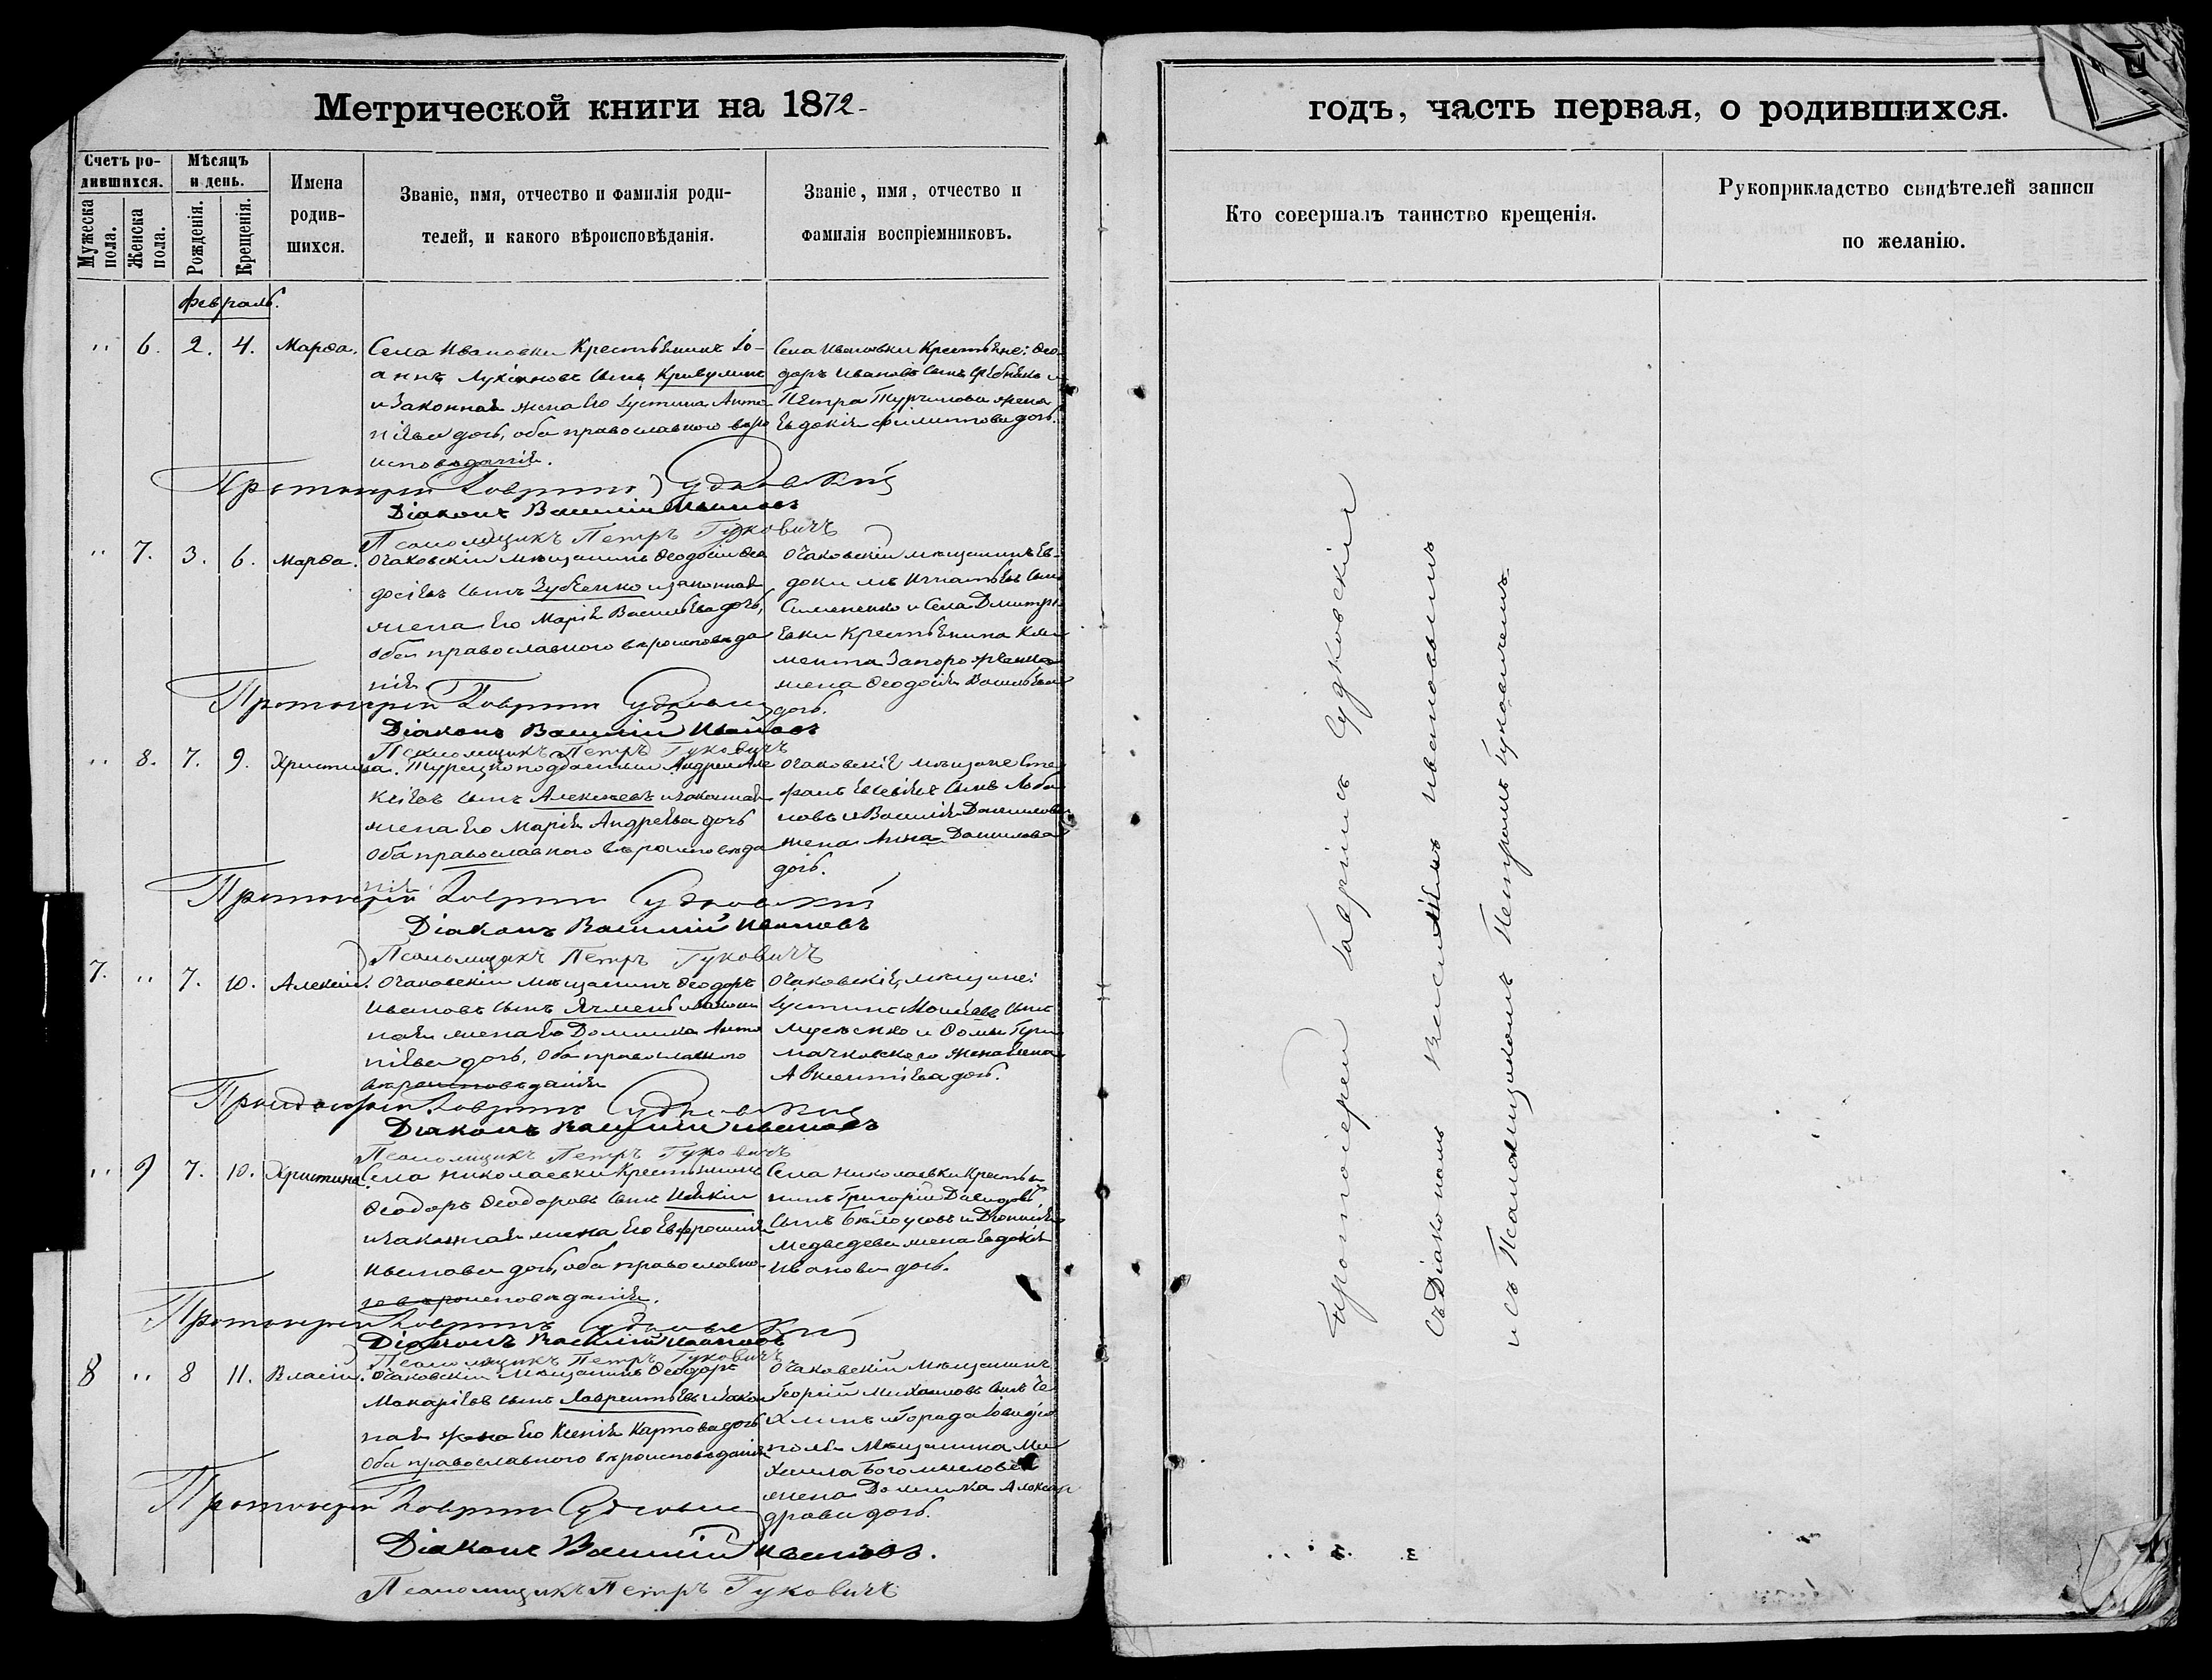 Метрической книги на 1872
годъ, часть первая, о родившихся.
Счетъ ро-
дившихся.
Мѣсяцъ
и день.
Мужеска
пола.
Женска
пола.
Рожденія.
Крещенія.
Имена
родив-
шихся.
Званіе, имя, отчество и фамилія роди-
телей, и какого вѣроисповѣданія.
Званіе, имя, отчество и
фамилія воспріемниковъ.
Кто совершалъ таинство крещенія.
Рукоприкладство свидѣтелей записи
по желанію.
Февраль.
" 6. 2. 4. Марѳа.
Села Ивановки Крестьянинъ Іо-
аннъ Лукіановъ сынъ Кривулинъ
и законная жена Его Іустина Анто-
ніева дочь, оба православнаго вѣро
исповѣданія.
Села Ивановки Крестьяне: Ѳео-
доръ Ивановъ сынъ и
Петра жена
Евдокія Филиппова дочь.
Протоіерей Гавріилъ Судковскій
Діаконъ Василій Ивановъ
Псаломщикъ Петръ Гуковичъ
" 7. 3. 6. Марѳа.
Очаковскій мѣщанинъ Ѳеодосій Ѳео
досіевъ сынъ Зубченко и законная
жена Его Марія Васильева дочь,
оба православнаго вѣроисповѣда
нія
Очаковскій мѣщанинъ Ев-
докимъ Игнатьевъ сынъ
Симененко и Села Дмитрі
евки Крестьянина Кли
мента Запорожченка
жена Ѳеодосія Васильева
дочь.
Протоіерей Гавріилъ Судковскій
Діаконъ Василій Ивановъ
Псаломщикъ Петръ Гуковичъ
" 8. 7. 9. Христина.
Турецкоподданный Андрей Але
ксіевъ сынъ Алексѣевъ и законная
жена Его Марія Андреева дочь
оба православнаго вѣроисповѣда
нія
Очаковскіе мѣщане Сте
фанъ Евсевіевъ сынъ Лоба
новъ и Василія Данилова
жена Анна Данилова
дочь.
Протоіерей Гавріилъ Судковскій
Діаконъ Василій Ивановъ
Псаломщикъ Петръ Гуковичъ
7. " 7. 10. Алексій.
Очаковскій мѣщанинъ Ѳеодоръ
Ивановъ сынъ Ячмень и закон
ная жена Его Домника Анто
ніева дочь, оба православнаго
вѣроисповѣданія
Очаковскіе мѣщане:
Іустинъ Моисеевъ сынъ
Мусѣенко и Ѳомы
жена Елена
Авксентіева дочь.
Протоіерей Гавріилъ Судковскій
Діаконъ Василій Ивановъ
Псаломщикъ Петръ Гуковичъ
" 9 7. 10. Христина.
Села Николаевки Крестьянинъ
Ѳеодоръ Ѳеодоровъ сынъ
и законная жена Его Евфросинія
Иванова дочь, оба православна-
го вѣроисповѣданія.
Села Николаевки Крестья
нинъ Григорій Давидовъ
сынъ Бѣлоусовъ и Діонисія
Медведева жена Евдокія
Иванова дочь.
Протоіерей Гавріилъ Судковскій
Діаконъ Василій Ивановъ
Псаломщикъ Петръ Гуковичъ
8 " 8 11. Власій.
Очаковскій мѣщанинъ Ѳеодоръ
Макаріевъ сынъ Лаврентьевъ и закон
ная жена Его Ксенія Карпова дочь
оба православнаго вѣроисповѣданія
Очаковскій мѣщанинъ
Георгій Михаиловъ сынъ Че
хлинъ и Города Овидіо
поля мѣщанина Ми
хаила Богомысловa
жена Домника Алексан
дрова дочь.
Протоіерей Гавріилъ Судковскій
Діаконъ Василій Ивановъ.
Псаломщикъ Петръ Гуковичъ
Протоіерей Гавріилъ Судковскій
съ Діакономъ Василіемъ Ивановымъ
и съ Псаломщикомъ Петромъ Гуковичемъ.